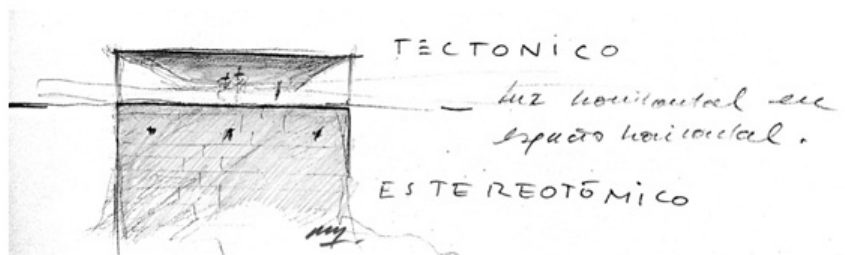 TECTONICO
luz horizontal en
espacio horizontal.
ESTEREOTÓMICO